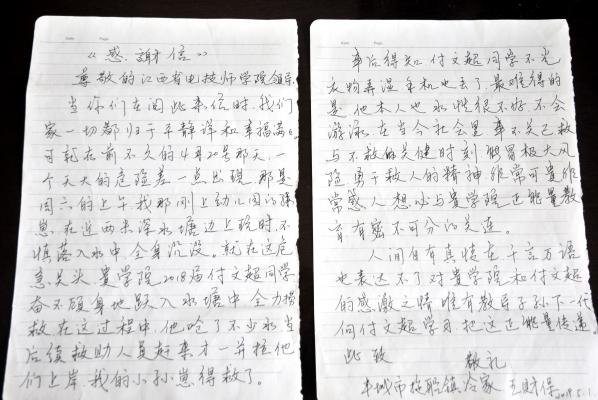 《感謝信》
尊敬的江西省电技师学院领导
当你们在阅此来信时,我们
家一切都归于平静详和幸福。
可就在前不久的4月20号那天,一
个天大的危险差一点出现,那是
周六的上午我那刚上幼儿园的孙
崽在近两米深水塘边上玩时,不
慎落入水中,全身沉没。就在这危
急关头,贵学院2018届付文超同学
奋不顾身地跃入水塘中全力搭
救在这过程中,他呛了不少水当
后续救助人员赶来才一并拉他
们上岸,我的小孙崽得救了。
事后得知付文超同学不光
衣物弄湿手机也丢了,最难得的
是他本人也水性很不好不会
游泳,在当今社会里事不关己救
与不救的关健时刻能冒极大风
险勇于救人的精神非常可贵非
常感人想必与贵学院正能量教
育有密不可分的关连。
人间自有真情在千言万语
也表达不了对贵学院和付文超
的感激之情唯有教导子孙下一代
向付文超学习把这正能量传递。
此致
敬礼
丰城市拖船镇合家 王财保 2019.5.1.